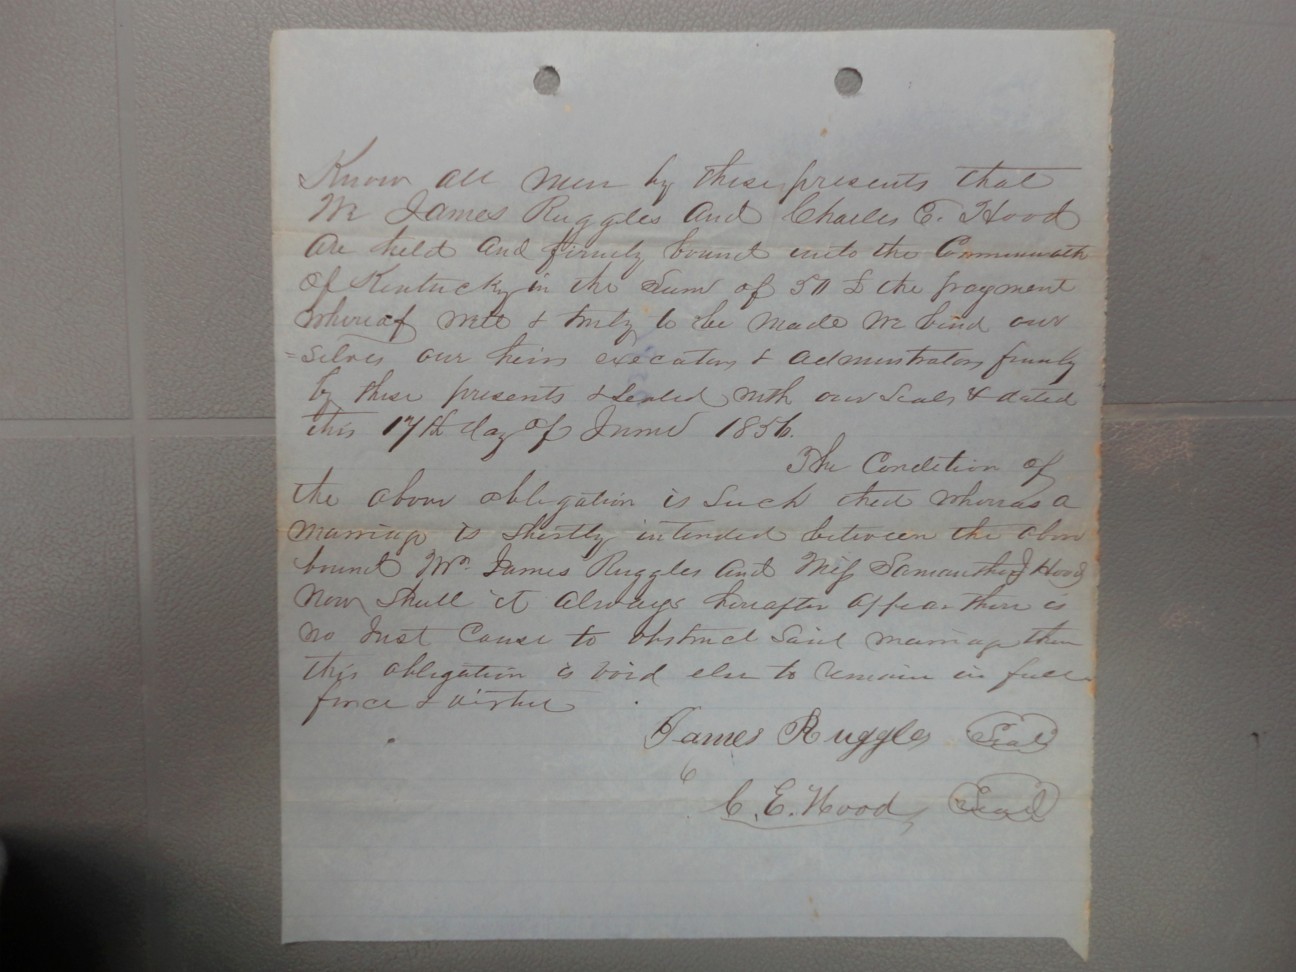 Know all men by these presents that
We James Ruggles and Charles E. Hood
are held and firmly bound unto the Commonwealth
of Kentucky in the Sum of 50 £ the payment
whereof well & truly to be made We bind our
=selves our heirs executors & administrators firmly
by these presents & Sealed with our Seals & dated
this 17th day of June 1856.
The Condition of
the above obligation is Such that whereas a
marriage is Shortly intended between the above
bound Mr. James Ruggles and Miss Samantha J Hood
Now Shall it always hereafter appear there is
no Just Cause to obstruct Said marriage then
this obligation is void else to remain in full
force & virtue
James Ruggles Seal
C. E. Hood Seal